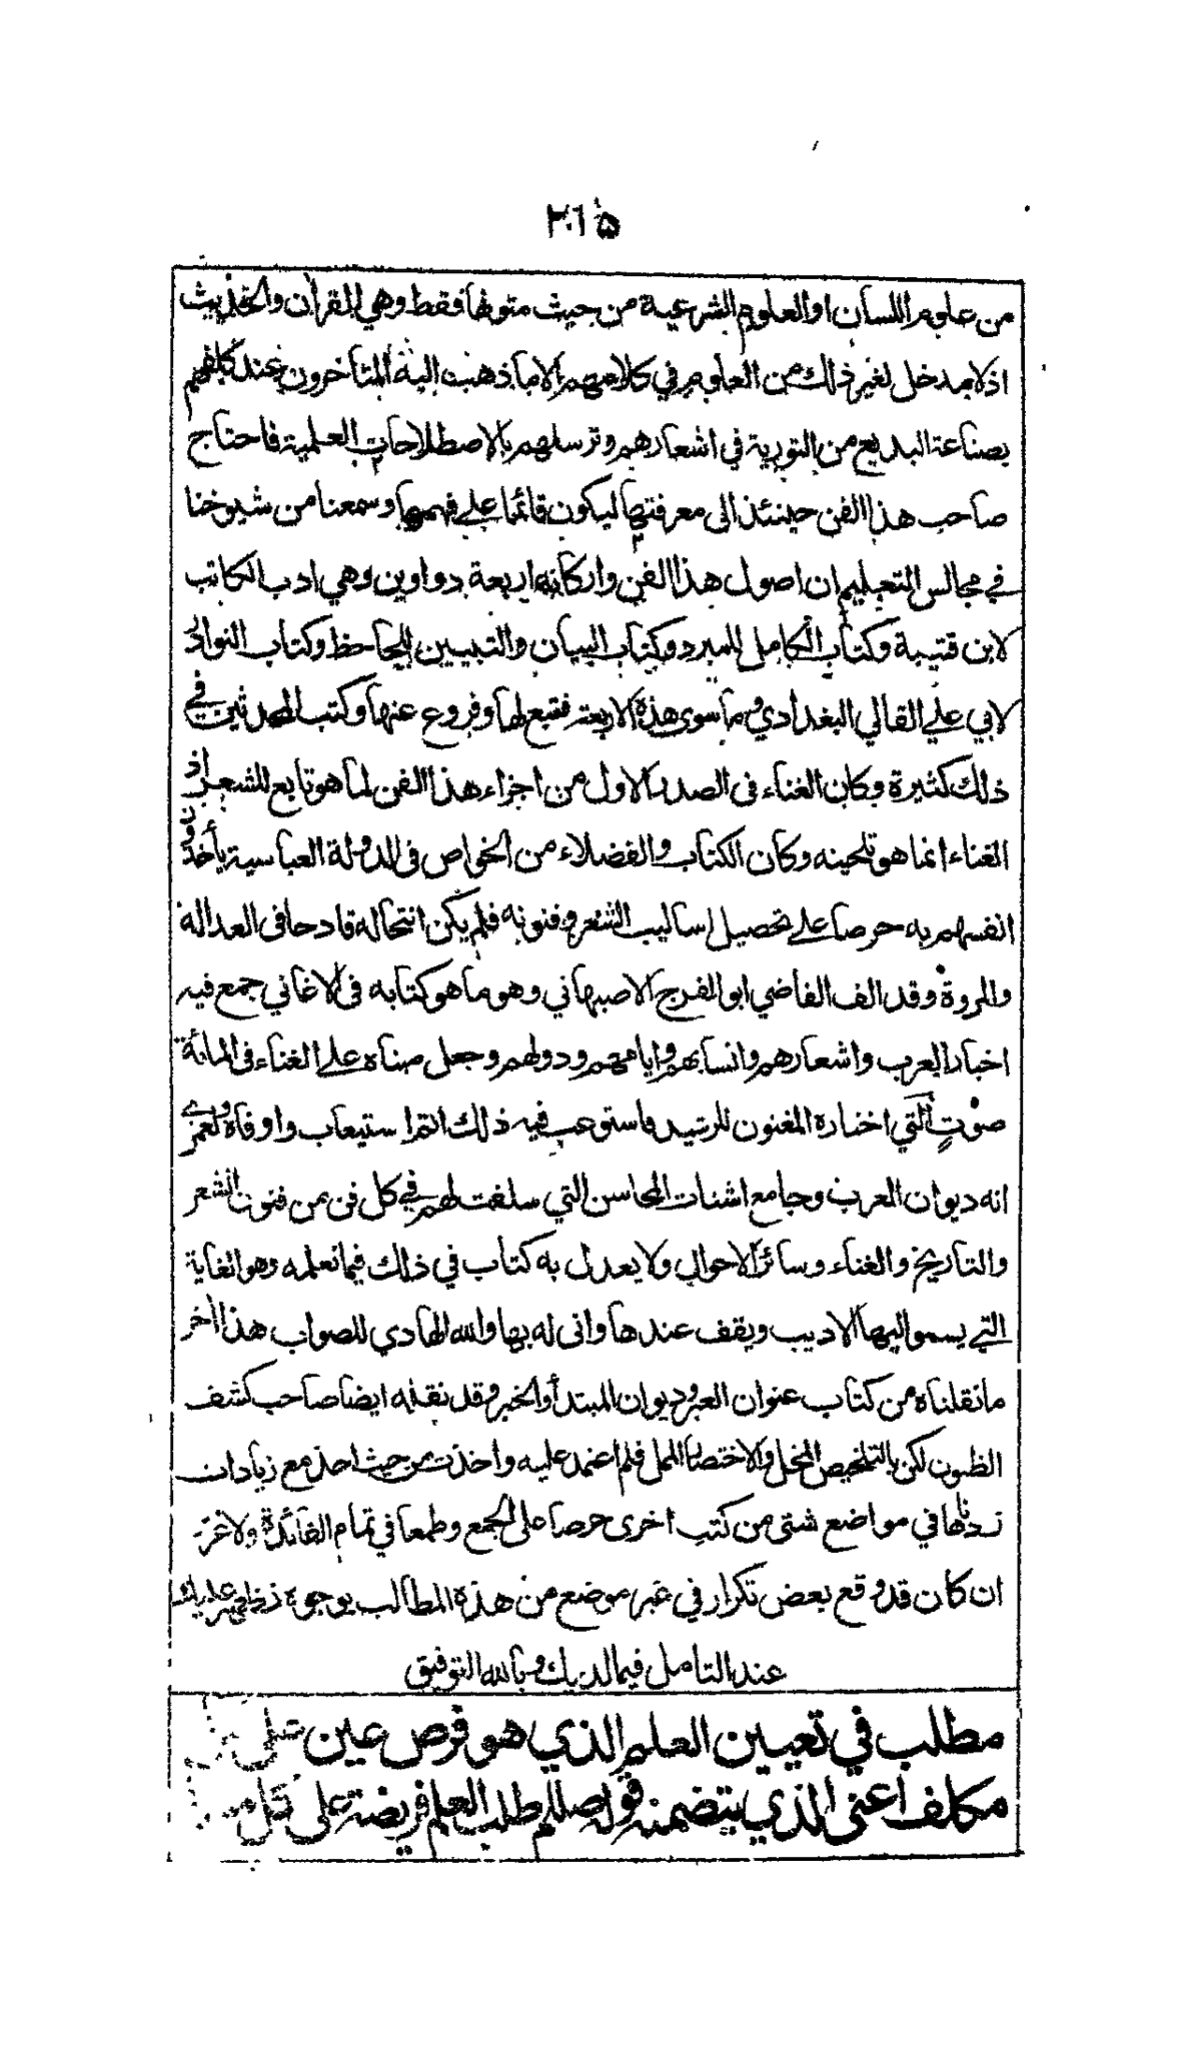 ٢٠١٥
من علوم اللسان او العلوم الشرعية من حيث متونها فقط وهي القرآن والحديث
اذ لا مدخل لغير ذلك من العلوم في كلامهم الا ما ذهب اليه المتاخرون عند كلفهم
بصناعة البديع من التورية في اشعارهم وترسلهم بالاصطلاحات العلمية فاحتاج
صاحب هذا الفن حينئذ الى معرفتها ليكون قائما على فهمها وسمعنا من شيوخنا
في مجالس التعليم ان اصول هذا الفن واركانه اربعة دواوين وهي ادب الكاتب
لابن قتيبة وكتاب الكامل للمبرد وكتاب البيان والتبيين للجاحظ وكتاب النوادر
لابي علي القالي البغدادي وما سوى هذه الاربعة فتبع لها وفروع عنها وكتب المحدثين في
ذلك كثيرة وكان الغناء فى الصدر الاول من اجزاء هذا الفن لما هو تابع للشعر اذ
الغناء انما هو تلحينه وكان الكتاب والفضلاء من الخواص فى الدولة العباسية يأخذون
انفسهم به حرصا على تحصيل اساليب الشعر وفنونه فلم يكن انتحاله قادحا فى العدالة
والمروة وقد الف القاضي ابو الفرج الاصبهاني وهو ما هو كتابه فى الاغاني جمع فيه
اخبار العرب واشعارهم وانسابهم وايامهم ودولهم وجعل مبناه على الغناء فى المائة
صوت التي اختاره المغنون للرشيد فاستوعب فيه ذلك اتم استيعاب واوفاه ولعمري
انه ديوان العرب وجامع اشتات المحاسن التي سلفت لهم في كل فن من فنون الشعر
والتاريخ والغناء وسائر الاحوال ولا يعدل به كتاب في ذلك فيما نعلمه وهو الغاية
التي يسمو اليها الاديب ويقف عندها وانى له بها والله الهادي للصواب هذا آخر
ما نقلناه من كتاب عنوان العبر وديوان المبتدأ والخبر وقد نقله ايضا صاحب كشف
الظنون لكن بالتلخيص المخل والاختصار الممل فلم اعتمد عليه واخذت من حيث اخذ مع زيادات
زدتها في مواضع شتى من كتب اخرى حرصا على الجمع وطمعا في تمام الفائدة ولا غرو
ان كان قد وقع بعض تكرار في غير موضع من هذه المطالب بوجوه تظهر عليك
عند التامل فيما لديك وبالله التوفيق
مطلب في تعيين العلم الذي هو فرض عين على
مكلف اعنى الذي يتضمنه قوله صللم طلب العلم فريضة على كل